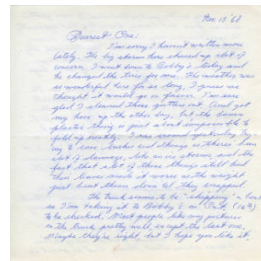 Dearest One:
I'm sorry I haven't written more
lately. The big storm there shook up a lot of
concern. I went down to Bobby's today and
he changed the tires for me. The weather was
so wonderful here for so long, I guess we
thought it would go on forever. I'm sure
glad I cleaned those gutters out and got
my hose up the other day, but the
plastic thing is just a
fold up neatly. I was around yesterday
to and things as there's been
a lot of damage, like in no storm, and the
fact that a lot of these things still had
their leaves made it worse as the weight
just bent them down til they snapped.
The truck seems to be "skipping" a
so I'm taking it to Bobby's on
to be checked. Most people like my picture
in the truck pretty well, except the last one.
Maybe they're right, but I hope you like it.